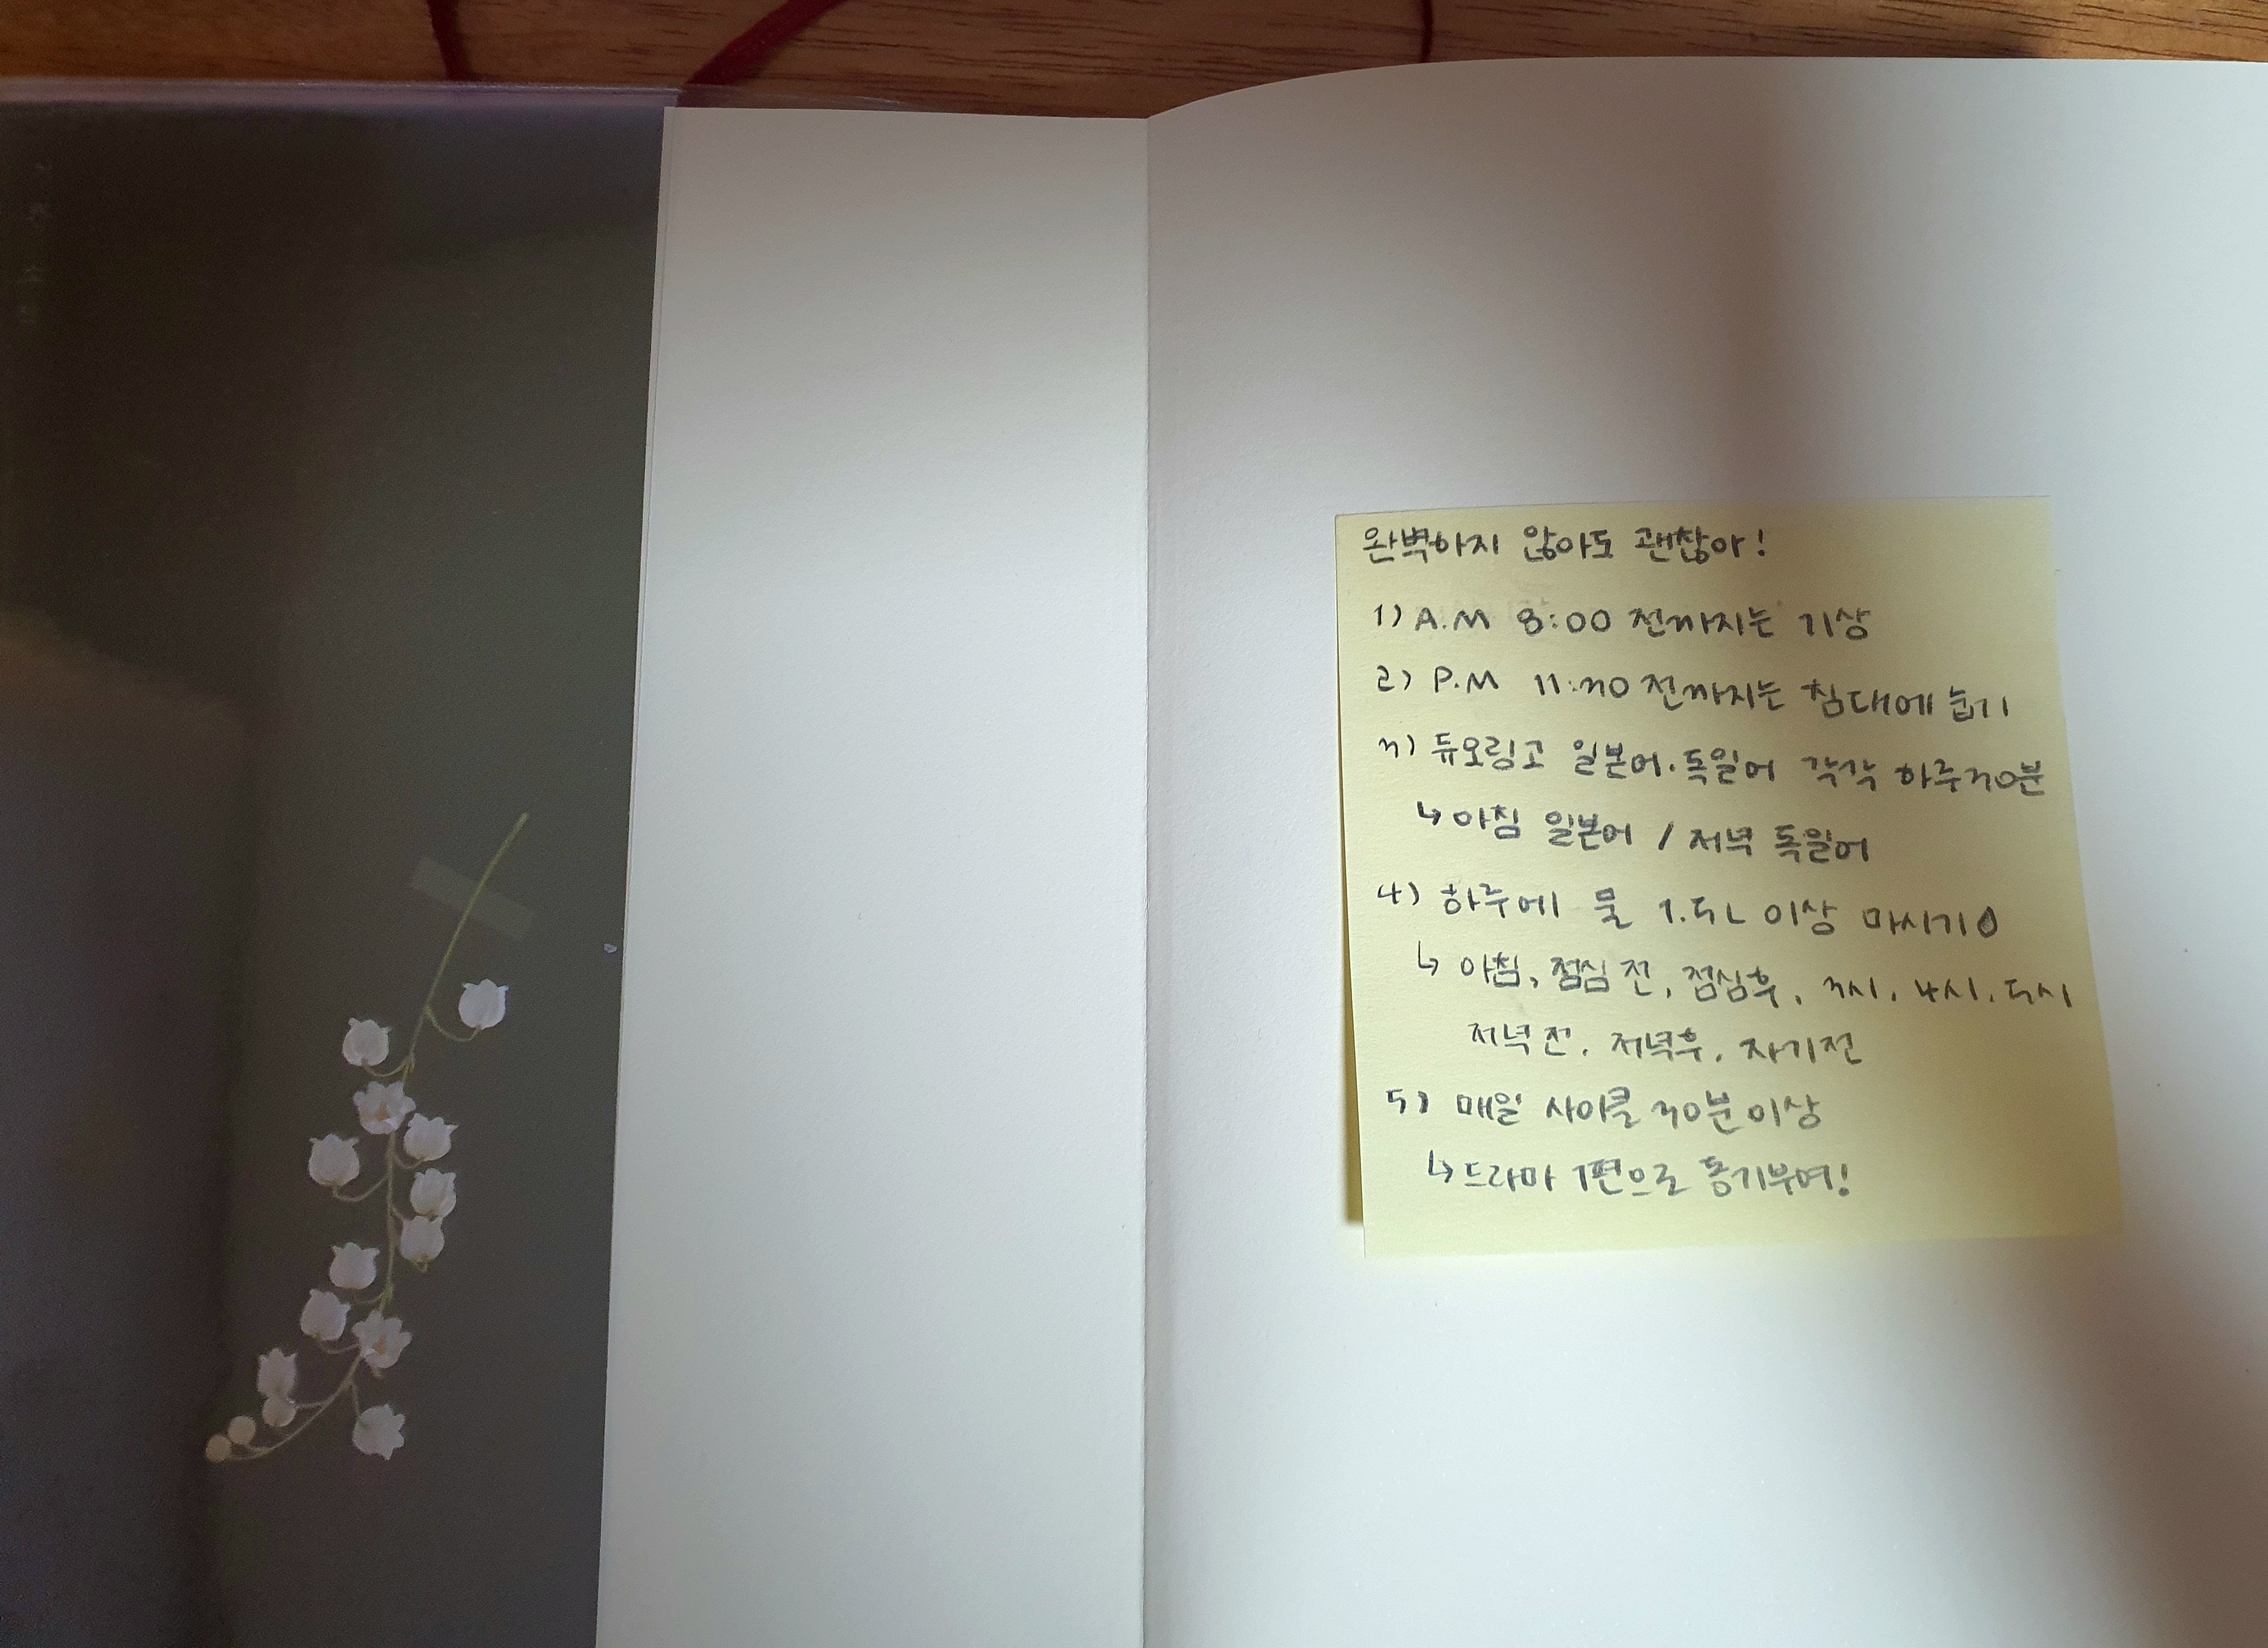 완벽하지 않아도 괜찮아!
1) A.M 8:00 전까지는 기상
2) P.M 11:30 전까지는 침대에 눕기
3) 듀오링고 일본어.독일어 각각 하루30분
↳아침 일본어 / 저녁 독일어
4) 하루에 물 1.5L 이상 마시기
↳ 아침, 점심 전, 점심후, 3시, 4시, 5시
저녁 전, 저녁후, 자기전
5) 매일 사이클 30분이상
↳드라마 1편으로 동기부여!